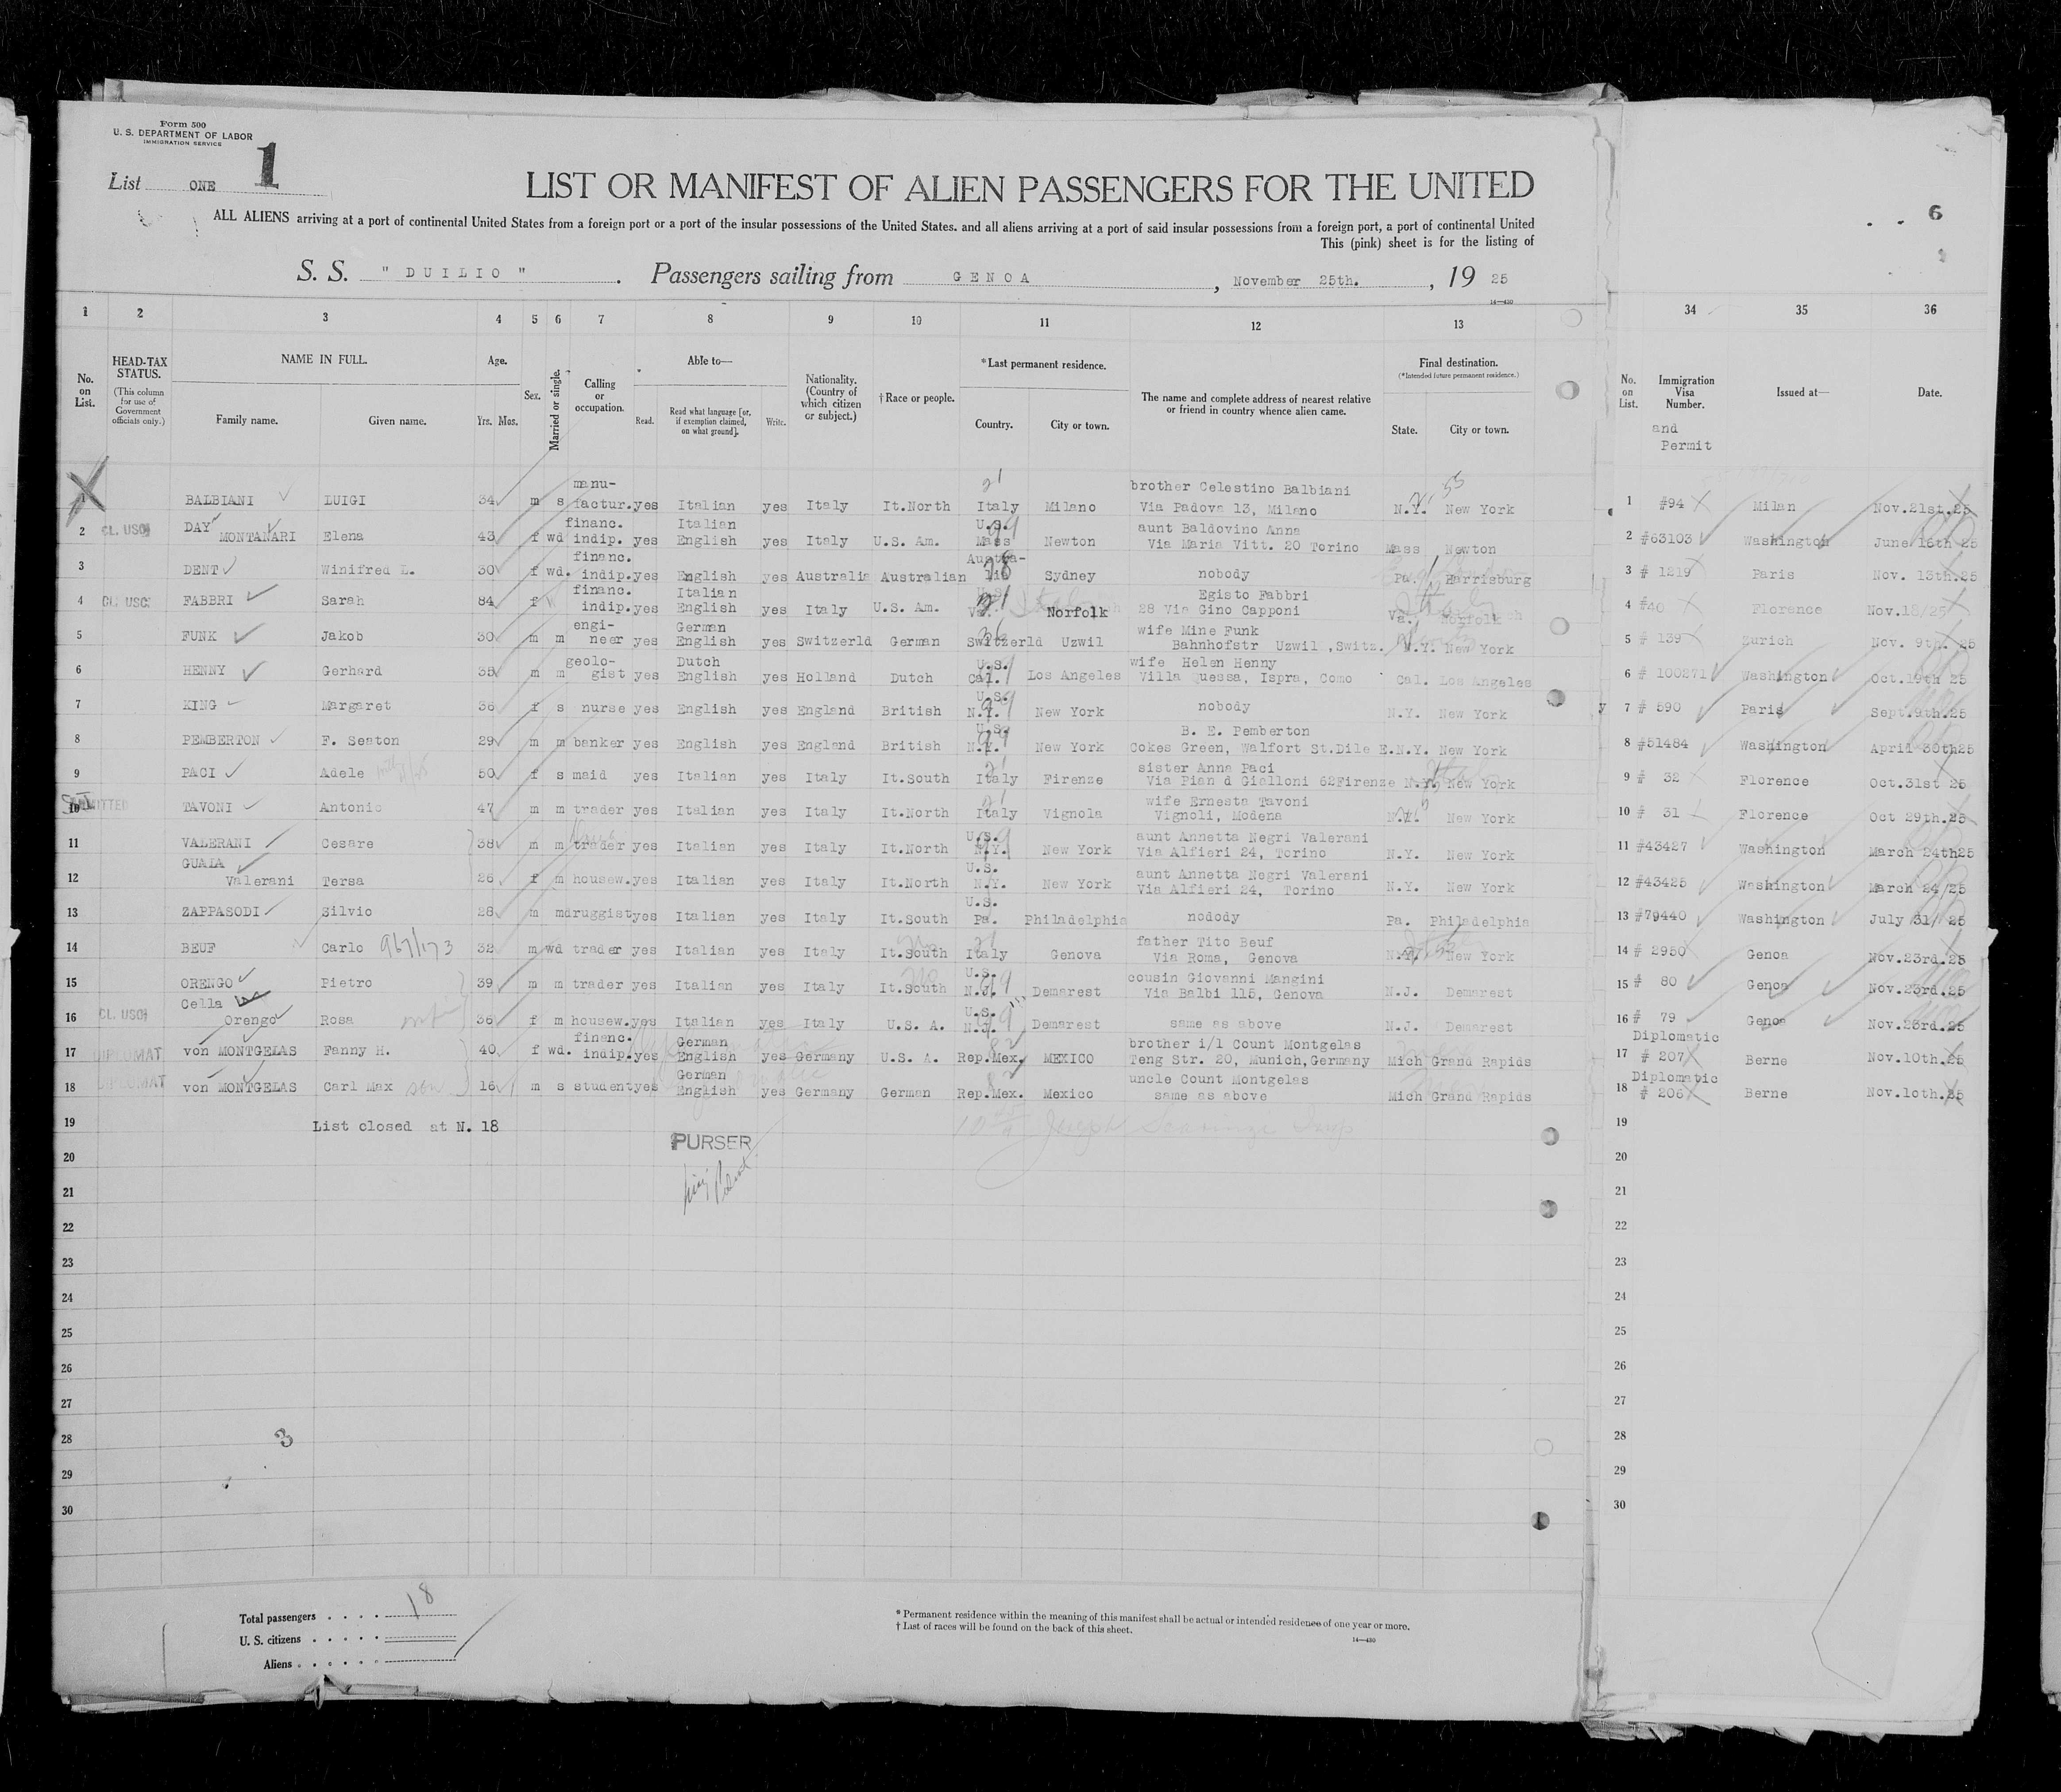 Form 500
U. S. DEPARTMENT OF LABOR
IMMIGRATION SERVICE
List ONE 1
LIST OR MANIFEST OF ALIEN PASSENGERS FOR THE UNITED
6
ALL ALIENS arriving at a port of continental United States from a foreign port or a port of the insular possessions of the United States. and all aliens arriving at a port of said insular possessions from a foreign port, a port of continental United
This (pink) sheet is for the listing of
S. S. " DUILIO ". Passengers sailing from GENOA, November 25th., 19 25
14—430
1 2 3 4 5 6 7 8 9 10 11 12 13 34 35 36
No. on List. HEAD-TAX STATUS. (This column for use of Government officials only.) NAME IN FULL. Family name. Given name. Age. Yrs. Mos. Sex. Married or single. Calling or occupation. Able to— Read. Read what language [or, if exemption claimed, on what ground]. Write. Nationality. (Country of which citizen or subject.) † Race or people. * Last permanent residence. Country. City or town. The name and complete address of nearest relative or friend in country whence alien came. Final destination. (*Intended future permanent residence.) State. City or town. No. on List. Immigration Visa Number. and Permit Issued at— Date.
1 BALBIANI LUIGI 34 m s manu-factur. yes Italian yes Italy It.North Italy Milano brother Celestino Balbiani Via Padova 13, Milano N.Y. New York 1 #94 Milan Nov.21st.25
2 CL. USC DAY MONTANARI Elena 43 f wd financ. indip. yes Italian English yes Italy U.S. Am. U.S. Mass Newton aunt Baldovino Anna Via Maria Vitt. 20 Torino Mass Newton 2 #63103 Washington June 16th 25
3 DENT Winifred L. 30 f wd. financ. indip. yes English yes Australia Australian Austra-lia Sydney nobody Pa. Harrisburg 3 # 1219 Paris Nov. 13th.25
4 CL. USC FABBRI Sarah 84 f financ. indip. yes Italian English yes Italy U.S. Am. 21 Va. Norfolk Egisto Fabbri 28 Via Gino Capponi Va. Norfolk 4 #40 Florence Nov.18/25
5 FUNK Jakob 30 m m engi-neer yes German English yes Switzerld German Switzerld Uzwil wife Mine Funk Bahnhofstr Uzwil ,Switz. N.Y. New York 5 # 139 Zurich Nov. 9th. 25
6 HENNY Gerhard 35 m m geolo-gist yes Dutch English yes Holland Dutch U.S. Cal. Los Angeles wife Helen Henny Villa Quessa, Ispra, Como Cal. Los Angeles 6 # 100271 Washington Oct.19th 25
7 KING Margaret 36 f s nurse yes English yes England British U.S. N.Y. New York nobody N.Y. New York 7 # 590 Paris Sept.9th.25
8 PEMBERTON F. Seaton 29 m m banker yes English yes England British U.S. N.Y. New York B. E. Pemberton Cokes Green, Walfort St.Dile E. N.Y. New York 8 #51484 Washington April 30th25
9 PACI Adele 50 f s maid yes Italian yes Italy It.South Italy Firenze sister Anna Paci Via Pian d Giolloni 62Firenze N.Y. New York 9 # 32 Florence Oct.31st 25
10 TAVONI Antonio 47 m m trader yes Italian yes Italy It.North Italy Vignola wife Ernesta Tavoni Vignoli, Modena N.Y. New York 10 # 31 Florence Oct 29th.25
11 VALERANI Cesare 38 m m trader yes Italian yes Italy It.North U.S. N.Y. New York aunt Annetta Negri Valerani Via Alfieri 24, Torino N.Y. New York 11 #43427 Washington March 24th25
12 GUALA Valerani Tersa 26 f m housew. yes Italian yes Italy It.North U.S. N.Y. New York aunt Annetta Negri Valerani Via Alfieri 24, Torino N.Y. New York 12 #43425 Washington March 24/25
13 ZAPPASODI Silvio 28 m m druggist yes Italian yes Italy It.South U.S. Pa. Philadelphia nodody Pa. Philadelphia 13 #79440 Washington July 31/ 25
14 BEUF Carlo 967/173 32 m wd trader yes Italian yes Italy It.South Italy Genova father Tito Beuf Via Roma, Genova N.Y. New York 14 # 2950 Genoa Nov.23rd.25
15 ORENGO Pietro 39 m m trader yes Italian yes Italy It.South U.S. N.J. Demarest cousin Giovanni Mangini Via Balbi 115, Genova N.J. Demarest 15 # 80 Genoa Nov.23rd.25
16 CL. USC Cella Orengo Rosa 36 f m housew. yes Italian yes Italy U.S. A. U.S. N.J. Demarest same as above N.J. Demarest 16 # 79 Genoa Nov.23rd.25
17 DIPLOMAT von MONTGELAS Fanny H. 40 f wd. financ. indip. yes German English yes Germany U.S. A. Rep.Mex. MEXICO brother i/l Count Montgelas Teng Str. 20, Munich,Germany Mich Grand Rapids 17 Diplomatic # 207 Berne Nov.10th.25
18 DIPLOMAT von MONTGELAS Carl Max son 16 m s student yes German English yes Germany German Rep.Mex. Mexico uncle Count Montgelas same as above Mich Grand Rapids 18 Diplomatic # 206 Berne Nov.10th.25
19 List closed at N. 18 19
PURSER
20 20
21 21
22 22
23 23
24 24
25 25
26 26
27 27
28 3 28
29 29
30 30
Total passengers . . . . 18
U. S. citizens . . . . .
Aliens . . . . . .
* Permanent residence within the meaning of this manifest shall be actual or intended residence of one year or more.
† List of races will be found on the back of this sheet.
14—430